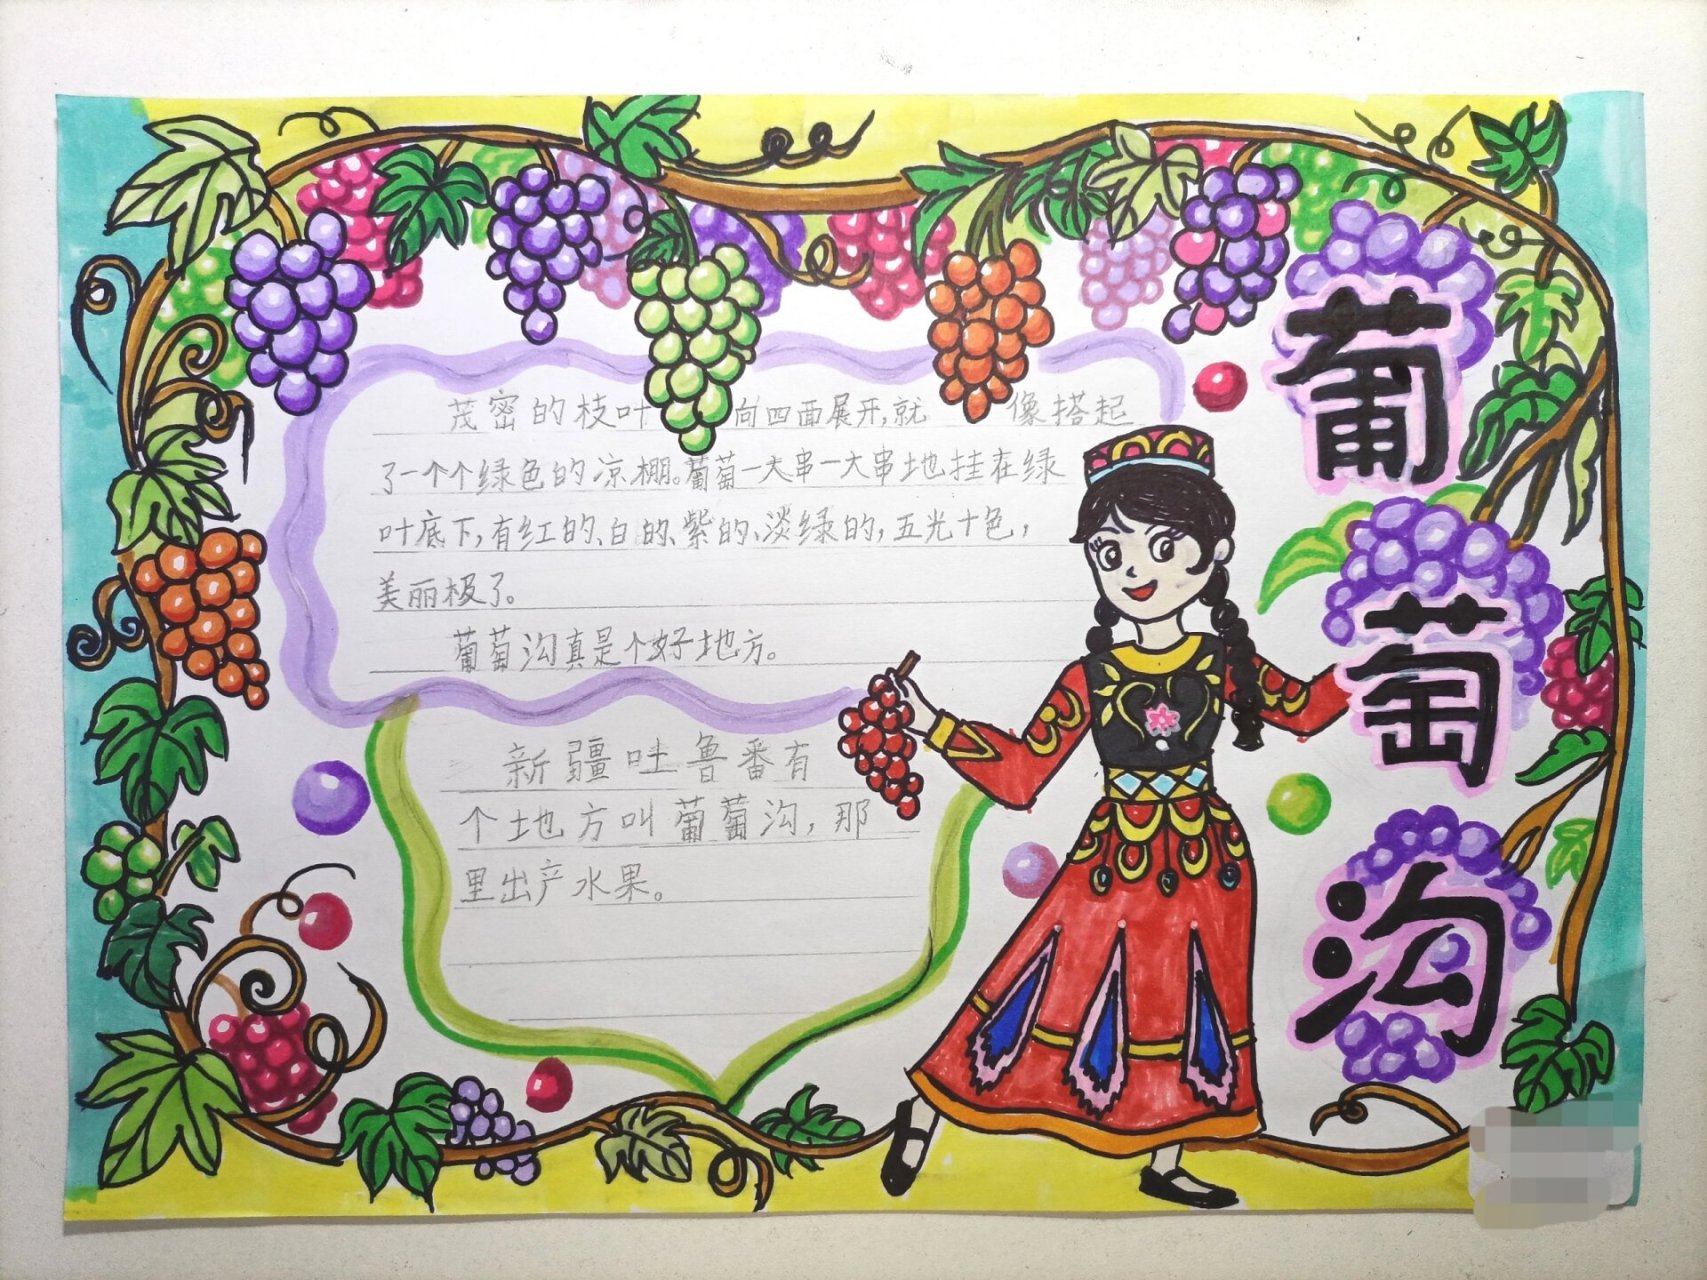 葡萄沟
茂密的枝叶向四面展开,就像搭起
了一个个绿色的凉棚。葡萄一大串一大串地挂在绿
叶底下,有红的、白的、紫的、淡绿的,五光十色,
美丽极了。
葡萄沟真是个好地方。
新疆吐鲁番有
个地方叫葡萄沟,那
里出产水果。